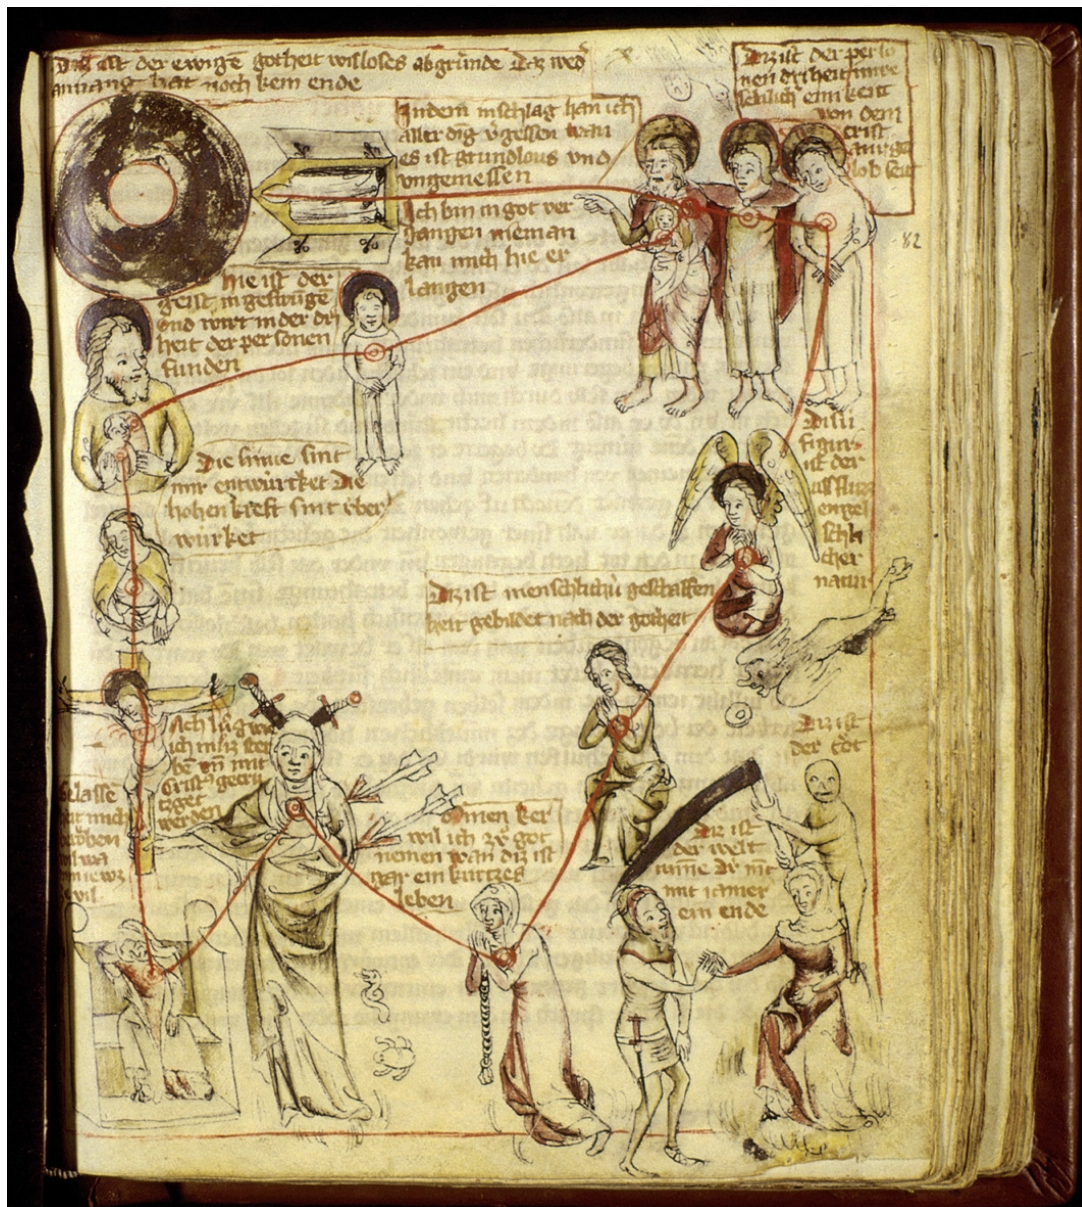 Diz ist der ewigē gotheit wisloses abgrúnde Daz wed
anuang hat noch kein ende
Diz ist der perso
nen driheit in we
selich einikeit
von dem
crist
lob seit
Indem inschlag han ich
aller dig vgessen wan
es ist grundlous vnd
vngemessen
Ich bin in got ver
gangen nieman
kan mich hie er
langen
82
hie ist der
geist ingeswūgē
vnd wirt in der dri
heit der personen
funden
Die sinne sint
mir entwúrket Die
hohen kreft sint úber
wúrket
Disú
figur
ist der
vsflus
engel
sch
cher
natur
Diz ist menschlichú geschaffen
heit gebildet nach der gotheit
Diz ist
der tot
Ich lůg wie
ich můz ster
bē vn̄ mit
crist gecrú
tzget
werden
Gelasse
mich
wil
minen ker
wil ich zů got
nemen wan diz ist
gar ein kurtzes
leben
Diz ist
der welt
minne Dú nīt
mit iamer
ein ende